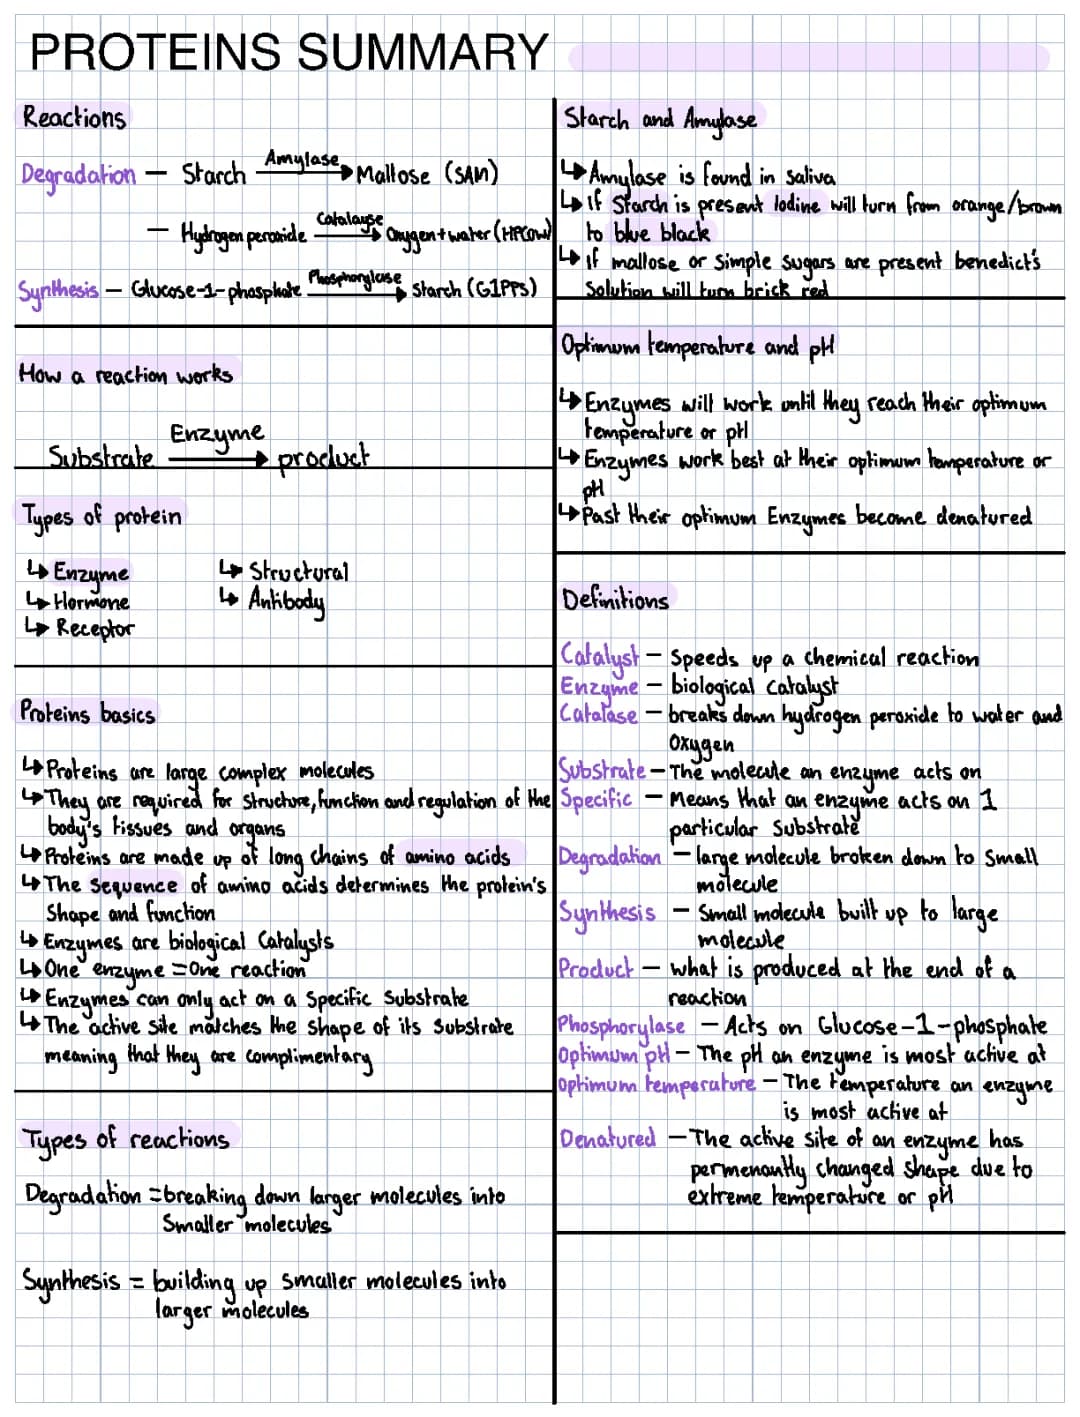 PROTEINS SUMMARY
Reactions
Degradation — Starch Amylase Mallose (SAM)
— Hydrogen peroxide Catalayse Oxygen + water (HPCOW)
Synthesis — Glucose-1-phosphate Phosphorylase Starch (G1PPS)
How a reaction works
Substrate Enzyme product
Types of protein
↳ Enzyme
↳ Hormone
↳ Receptor
↳ Structural
↳ Antibody
Proteins basics
↳ Proteins are large complex molecules
↳ They are required for structure, function and regulation of the
body's tissues and organs
↳ Proteins are made up of long chains of amino acids
↳ The sequence of amino acids determines the protein's
shape and function
↳ Enzymes are biological catalysts
↳ One enzyme = One reaction
↳ Enzymes can only act on a specific substrate
↳ The active site matches the shape of its substrate
meaning that they are complimentary
Types of reactions
Degradation = breaking down larger molecules into
smaller molecules
Synthesis = building up smaller molecules into
larger molecules
Starch and Amylase
↳ Amylase is found in saliva
↳ if Starch is present Iodine will turn from orange/brown
to blue black
↳ if mallose or simple sugars are present benedict's
solution will turn brick red
Optimum temperature and pH
↳ Enzymes will work until they reach their optimum
temperature or pH
↳ Enzymes work best at their optimum temperature or
pH
↳ Past their optimum Enzymes become denatured
Definitions
Catalyst — Speeds up a chemical reaction
Enzyme — biological catalyst
Catalase — breaks down hydrogen peroxide to water and
Oxygen
Substrate — The molecule an enzyme acts on
Specific — Means that an enzyme acts on 1
particular substrate
Degradation — large molecule broken down to small
molecule
Synthesis — Small molecule built up to large
molecule
Product — what is produced at the end of a
reaction
Phosphorylase — Acts on Glucose-1-phosphate
Optimum pH — The pH an enzyme is most active at
optimum temperature — The temperature an enzyme
is most active at
Denatured — The active site of an enzyme has
permenantly changed shape due to
extreme temperature or pH